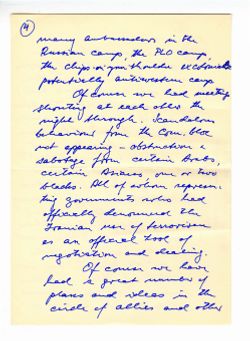 (4)
many ambassadors in the
Russian camp, the PLO camp,
the chips-on-your-shoulder ex colonials
potentially antiwestern camp
Of course we had meetings
shouting at each other the
night through. Scandalous
behaviour from the Com. bloc
not appearing - obstruction &
sabotage from certain Arabs,
certain Asians one or two
blacks. All of whom represen-
ting governments who had
officially denounced the
Iranian use of terrorism
as an official tool of
negotiation and dealing.
Of course we have
had a great number of
plans and ideas in the
circle of allies and other